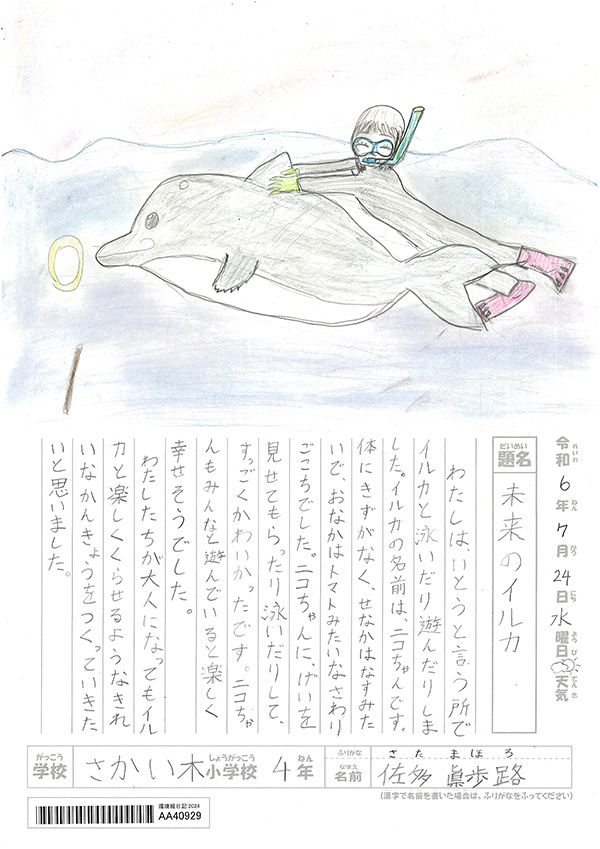 令和6年7月24日水曜日天気
れいわ ねん がつ にち ようび てんき
だいめい
題名 未来のイルカ
わたしは、いとうと言う所で
イルカと泳いだり遊んだりしま
した。イルカの名前は、ニコちゃんです。
体にきずがなく、せなかはなすみた
いで、おなかはトマトみたいなさわり
ごこちでした。ニコちゃんに、げいを
見せてもらったり泳いだりして、
すっごくかわいかったです。ニコちゃ
んもみんなと遊んでいると楽しく
幸せそうでした。
わたしたちが大人になってもイル
カと楽しくくらせるようなきれ
いなかんきょうをつくっていきた
いと思いました。
がっこう しょうがっこう ねん
学校 さかい木小学校 4年
ふりがな さた まほろ
なまえ
名前 佐多 眞歩路
(漢字で名前を書いた場合は、ふりがなをふってください)
環境絵日記2024
AA40929